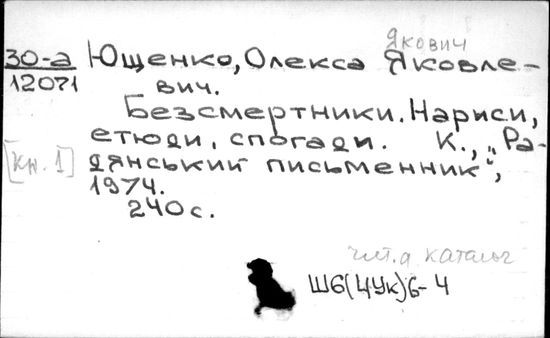 Якович
30-а Ющенко, Олекса Яковле-
12071 вич.
Безсмертники. Нариси,
етюди, спогади. К., „Ра-
[кн. 1] дянський письменник",
1974.
240 с.
чит. д каталог
Ш6(4Ук)6-4